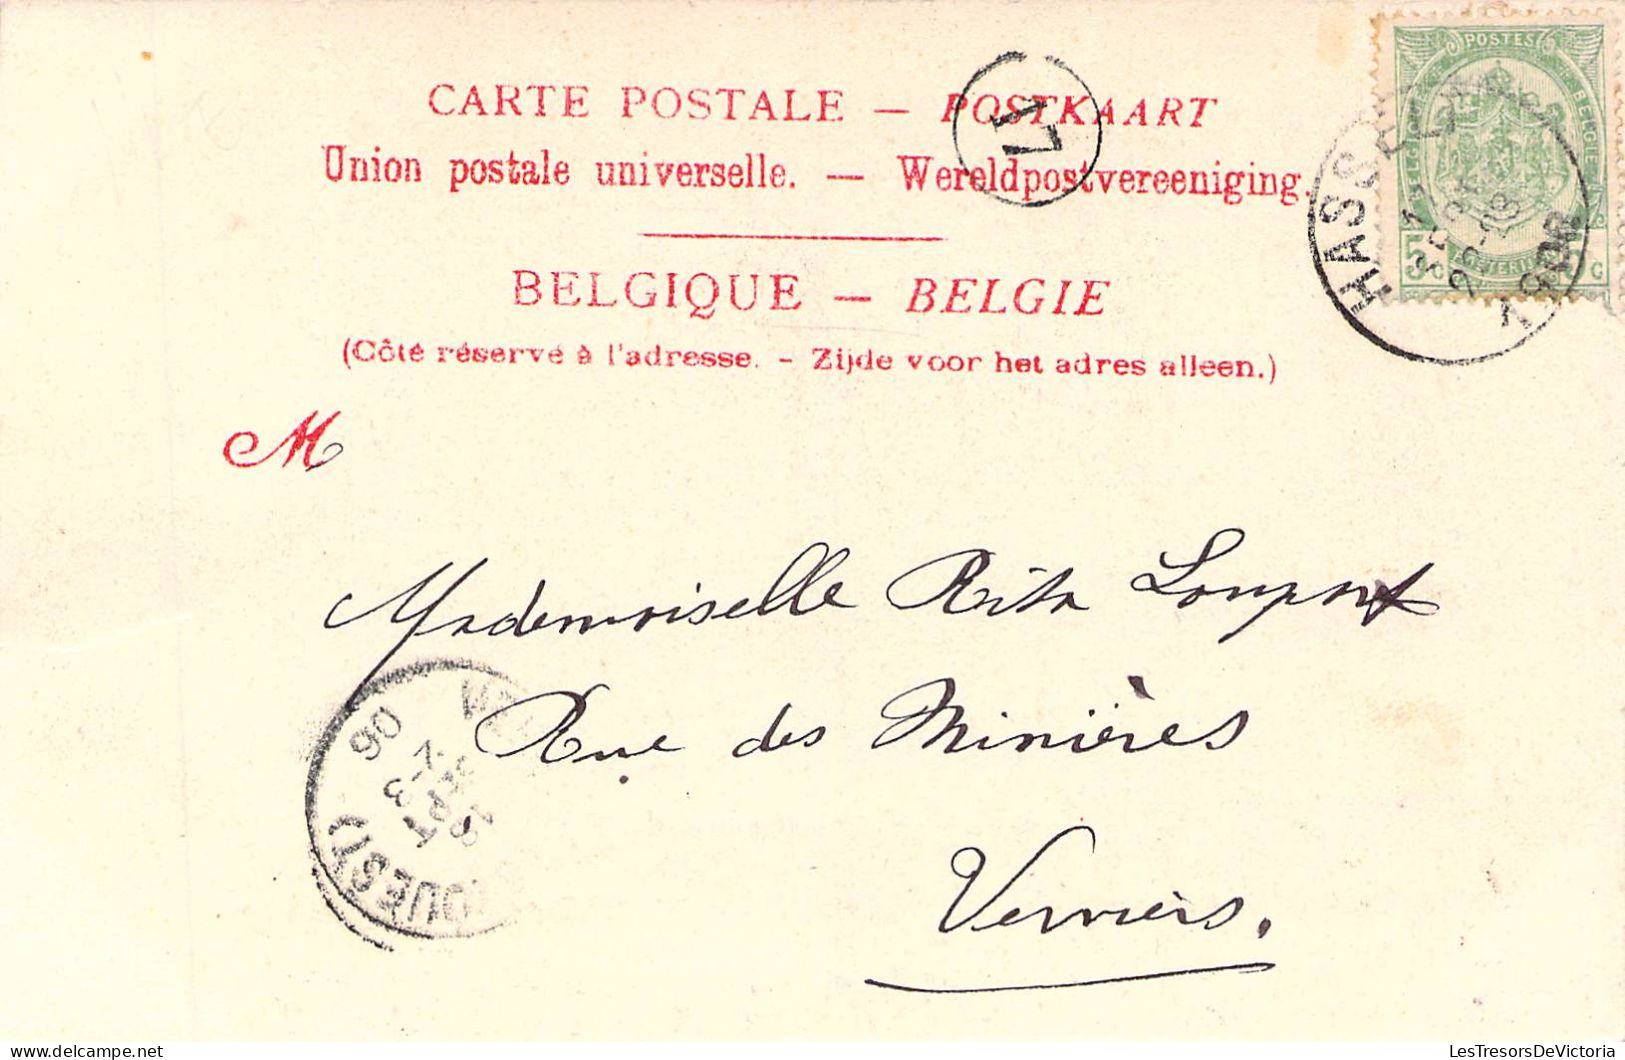 CARTE POSTALE — POSTKAART
Union postale universelle. — Wereldpostvereeniging.
BELGIQUE — BELGIE
(Côté réservé à l'adresse. - Zijde voor het adres alleen.)
M
POSTES
5 C 5 C
HASSELT
1906
17
Mademoiselle Rita
Rue des Minières
Verviers.
06
(OUEST)
LesTresorsDeVictoria